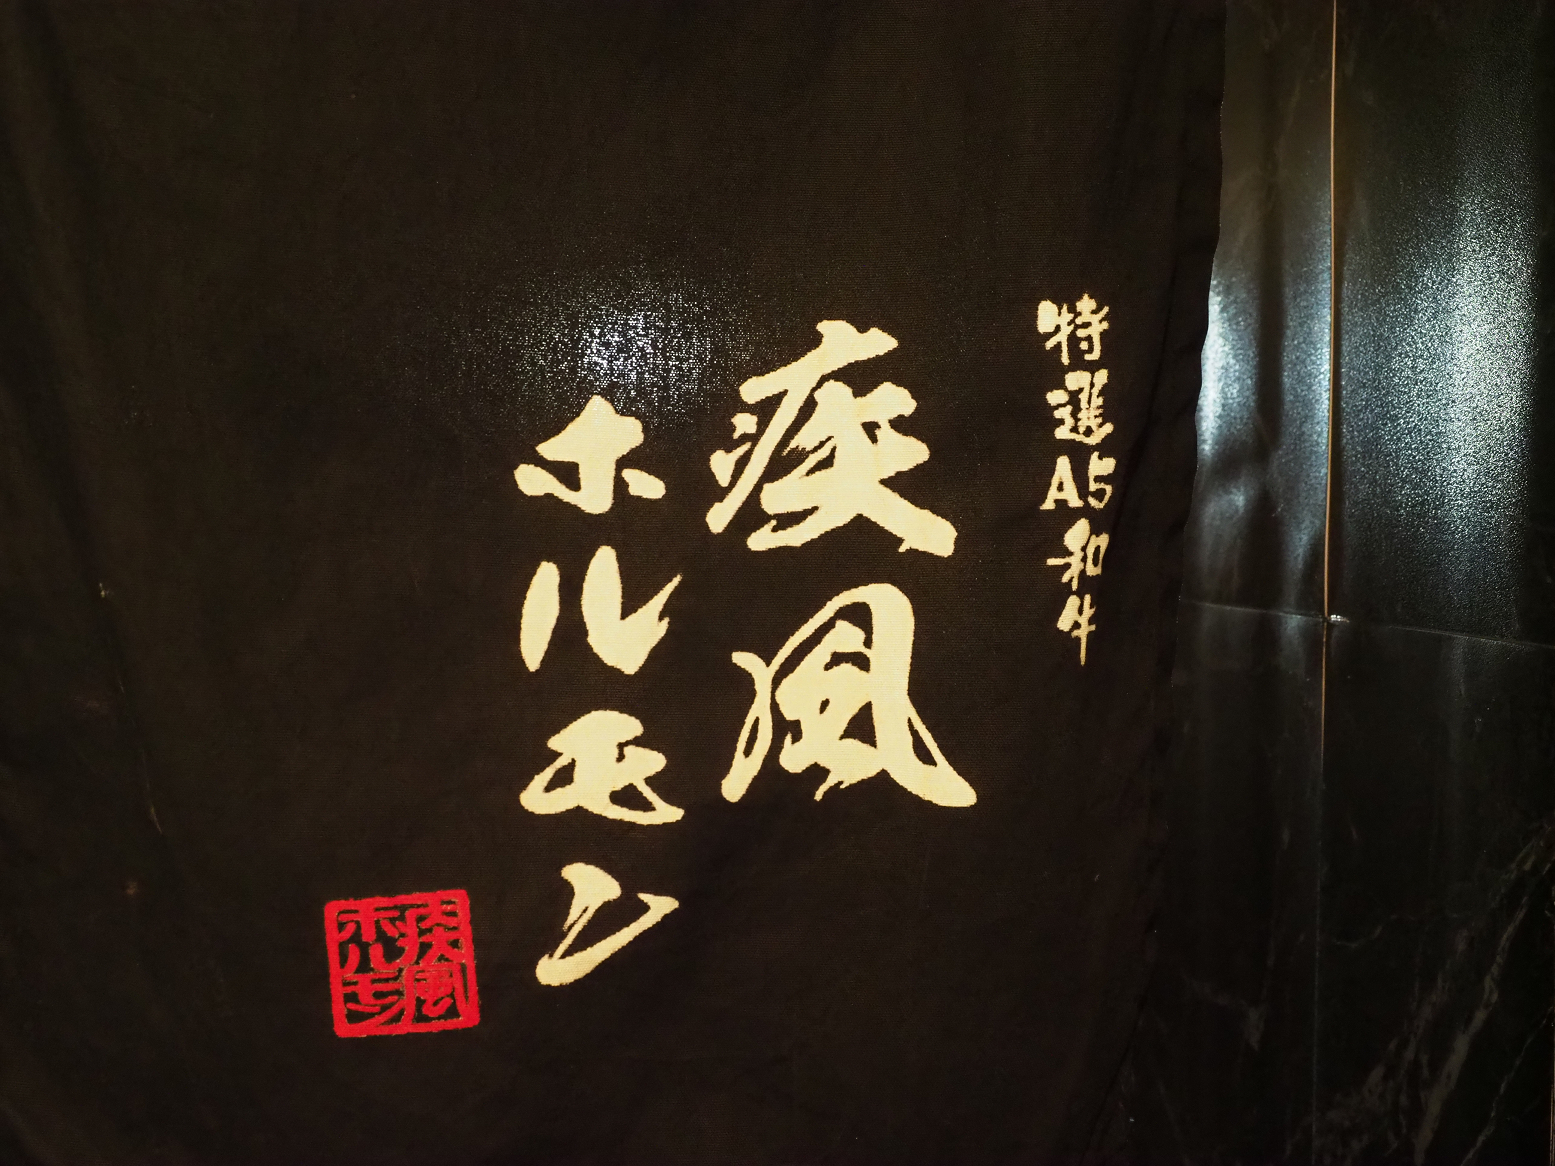 特選A5和牛
疾風
ホルモン
疾風
ホルモン